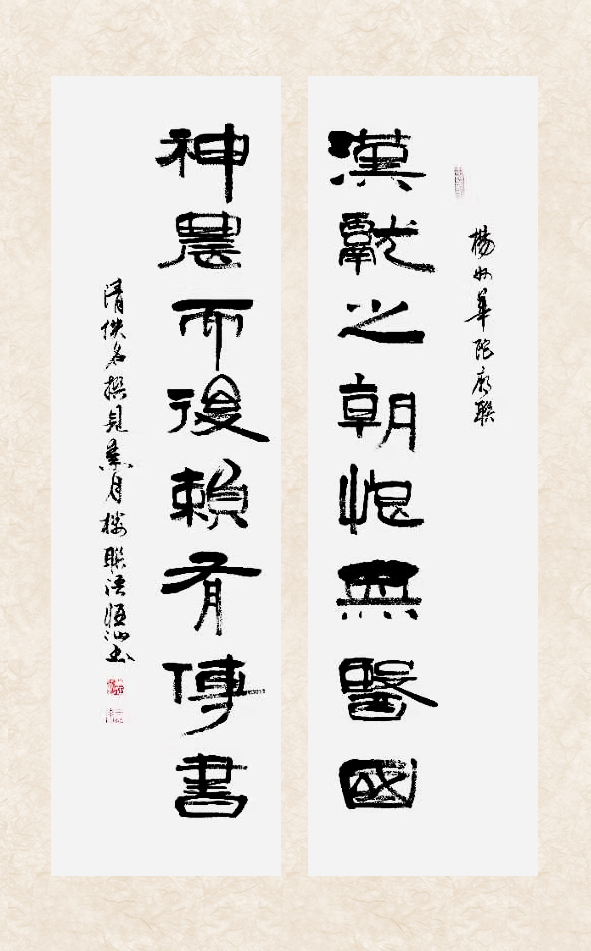 楊州華陀廟聯
漢獻之朝愧無醫國
神農而後賴有傳書
清佚名撰見素月樓聯語恆汕書